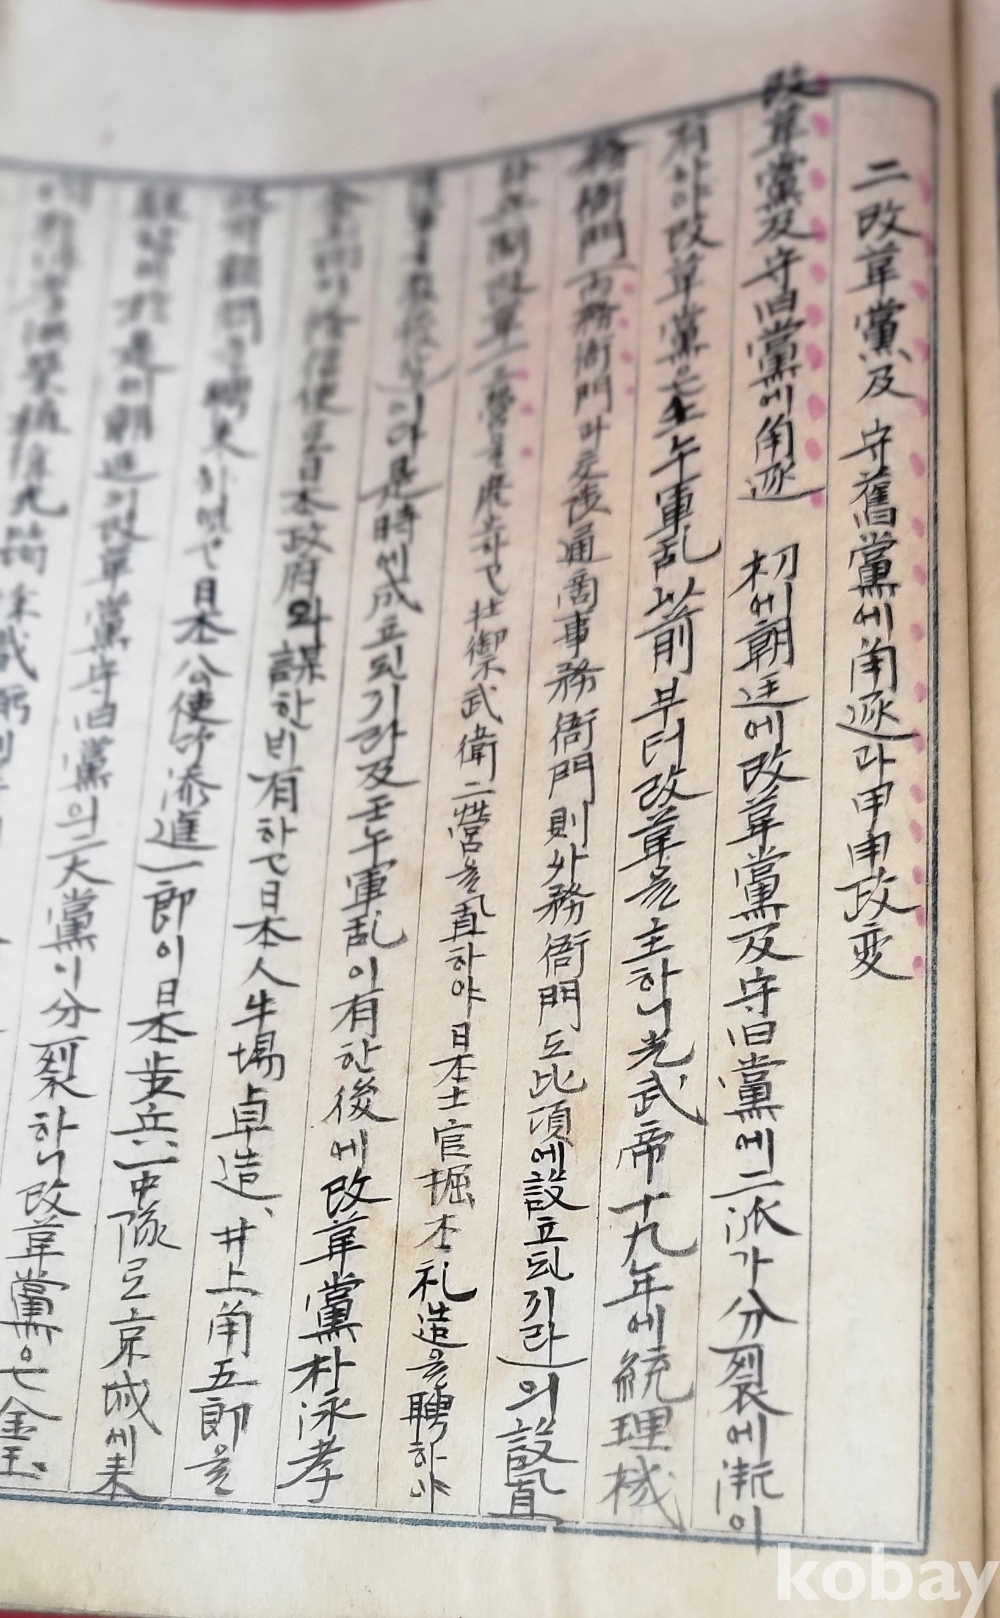 二 改革黨及 守舊黨에 角逐과 甲申政変
改革黨及守旧黨에角逐 初에朝廷에改革黨及守旧黨에二派가分裂에漸이
有하야改革黨은壬午軍乱以前부터改革을主하니光武帝十九年에統理機
務衙門(內務衙門과交涉通商事務衙門則外務衙門도此頃에設立되기라)의設置
兵制改革(三營을廢하고壯御禦武衛二營을置하야日本士官堀本礼造을聘하야
이라是時에成立되기라及壬午軍乱이有한後에改革黨朴泳孝
金玉均이修信使로日本政府와謀한비有하고日本人牛場卓造、井上角五郎을
政府顧問으로聘来하엿고日本公使竹添進一郎이日本步兵一中隊로京城에来
駐하며於是에朝廷의改革黨守旧黨의二大黨이分裂하니改革黨은金玉
均朴泳孝洪英植徐光範